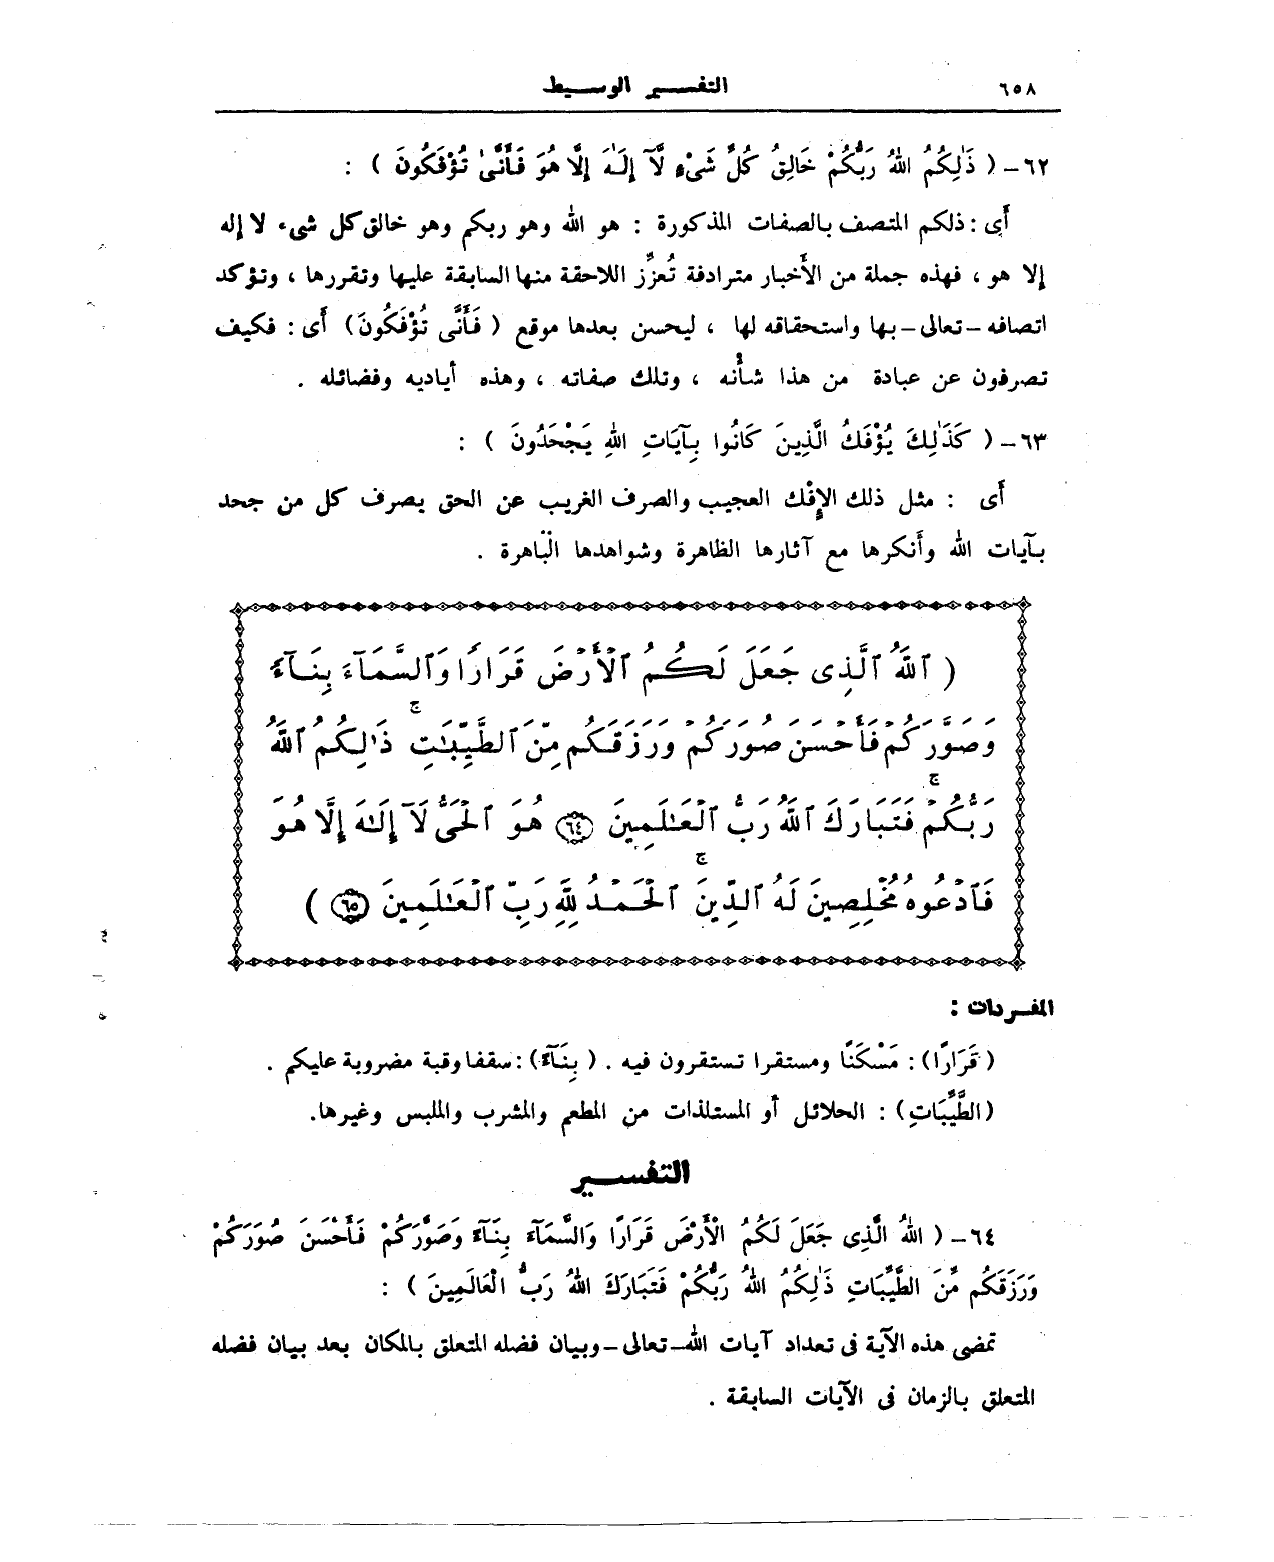 ٦٥٨ التفسير الوسيط
٦٢ – ( ذَٰلِكُمُ اللهُ رَبُّكُمْ خَالِقُ كُلِّ شَيْءٍ لَّآ إِلَـٰهَ إِلَّا هُوَ فَأَنَّىٰ تُؤْفَكُونَ ) :
أَى : ذلكم المتصف بالصفات المذكورة : هو الله وهو ربكم وهو خالق كل شىء لا إله
إلا هو ، فهذه جملة من الأَخبار مترادفة تُعزِّز اللاحقة منها السابقة عليها وتقررها ، وتؤكد
اتصافه – تعالى – بها واستحقاقه لها ، ليحسن بعدها موقع ( فَأَنَّى تُؤْفَكُونَ ) أَى : فكيف
تصرفون عن عبادة من هذا شأْنه ، وتلك صفاته ، وهذه أياديه وفضائله .
٦٣ – ( كَذَٰلِكَ يُؤْفَكُ الَّذِينَ كَانُوا بِآيَاتِ اللهِ يَجْحَدُونَ ) :
أَى : مثل ذلك الإِفْك العجيب والصرف الغريب عن الحق يصرف كل من جحد
بآيات الله وأَنكرها مع آثارها الظاهرة وشواهدها الباهرة .
( ٱللَّهُ ٱلَّذِى جَعَلَ لَكُمُ ٱلْأَرْضَ قَرَارًا وَٱلسَّمَآءَ بِنَآءً
وَصَوَّرَكُمْ فَأَحْسَنَ صُوَرَكُمْ وَرَزَقَكُم مِّنَ ٱلطَّيِّبَـٰتِ ۚ ذَٰلِكُمُ ٱللَّهُ
رَبُّكُمْ ۚ فَتَبَارَكَ ٱللَّهُ رَبُّ ٱلْعَـٰلَمِينَ ﴿٦٤﴾ هُوَ ٱلْحَىُّ لَآ إِلَـٰهَ إِلَّا هُوَ
فَٱدْعُوهُ مُخْلِصِينَ لَهُ ٱلدِّينَ ۚ ٱلْحَمْدُ لِلَّهِ رَبِّ ٱلْعَـٰلَمِينَ ﴿٦٥﴾ )
المفردات :
( قَرَارًا ) : مَسْكَنًا ومستقرا تستقرون فيه . ( بِنَآءً ) : سقفا وقبة مضروبة عليكم .
( الطَّيِّبَاتِ ) : الحلائل أَو المستلذات من المطعم والمشرب والملبس وغيرها .
التفسير
٦٤ – ( اللهُ الَّذِى جَعَلَ لَكُمُ الْأَرْضَ قَرَارًا وَالسَّمَآءَ بِنَآءً وَصَوَّرَكُمْ فَأَحْسَنَ صُوَرَكُمْ
وَرَزَقَكُم مِّنَ الطَّيِّبَاتِ ذَٰلِكُمُ اللهُ رَبُّكُمْ فَتَبَارَكَ اللهُ رَبُّ الْعَالَمِينَ ) :
تمضى هذه الآية فى تعداد آيات الله – تعالى – وبيان فضله المتعلق بالمكان بعد بيان فضله
المتعلق بالزمان فى الآيات السابقة .